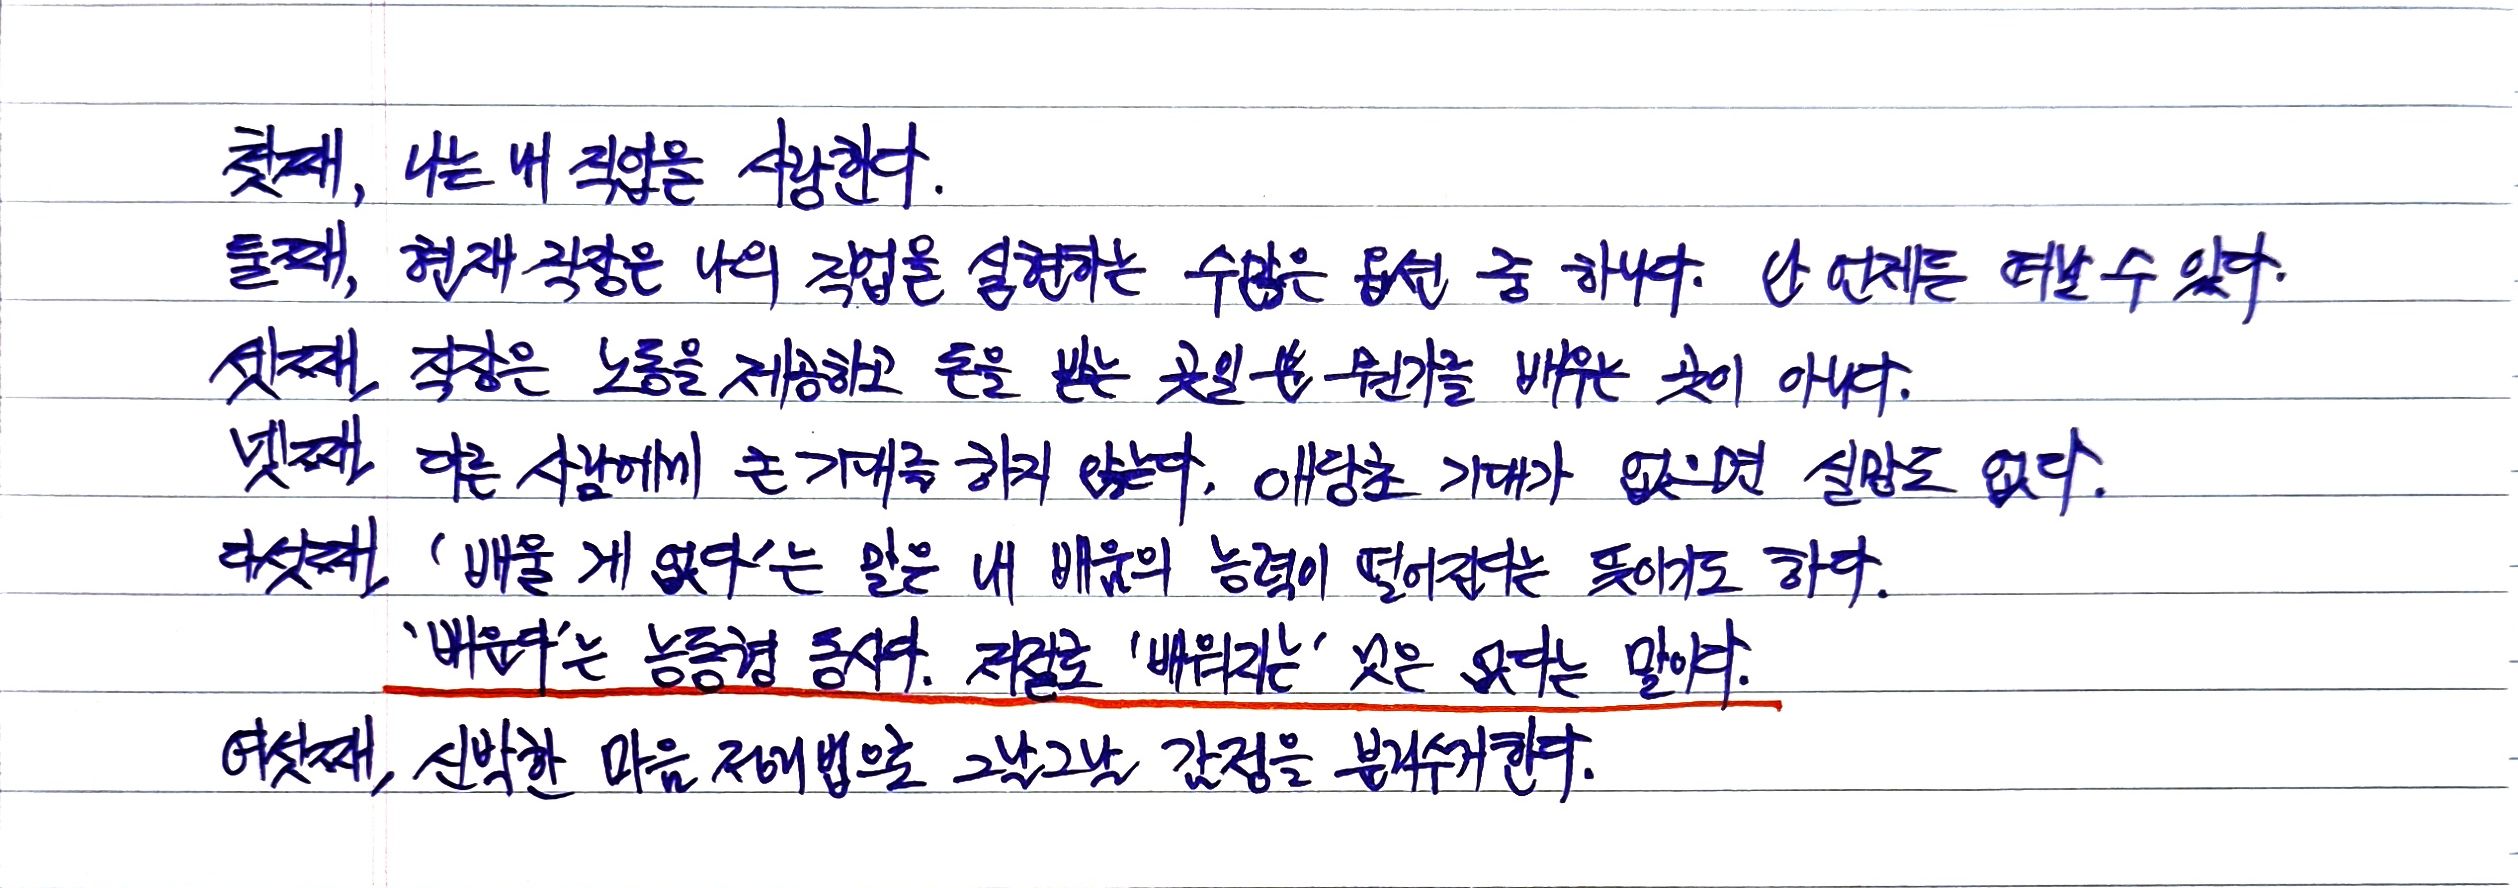 첫째, 나는 내 직업을 사랑한다.
둘째, 현재 직장은 나의 직업을 실현하는 수많은 옵션 중 하나다. 난 언제든 떠날 수 있다.
셋째, 직장은 노동을 제공하고 돈을 받는 곳일 뿐 무언가를 배우는 곳이 아니다.
넷째, 다른 사람에게 큰 기대를 하지 않는다. 애당초 기대가 없으면 실망도 없다.
다섯째, '배울 게 없다'는 말은 내 배움의 능력이 떨어진다는 뜻이기도 하다.
'배우다'는 능동형 동사다. 저절로 '배워지는' 것은 없다는 말이다.
여섯째, 신박한 마음 정리법으로 그날그날 감정을 분리수거한다.